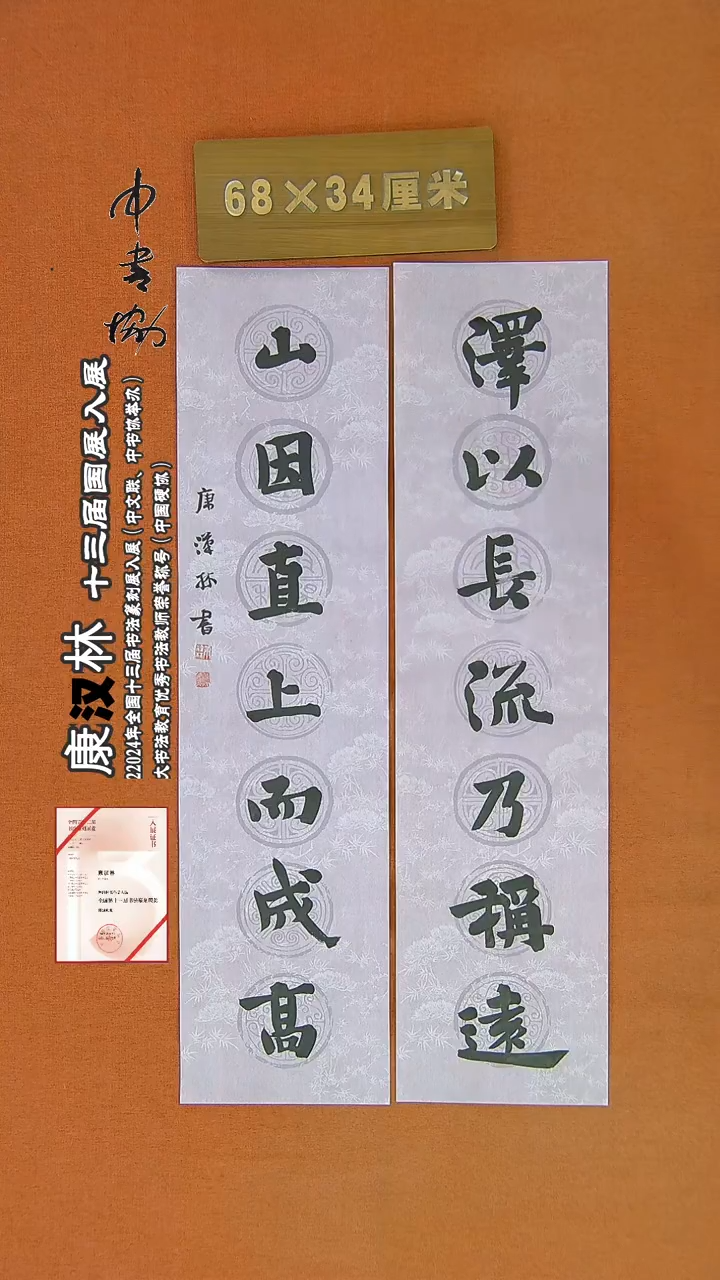 68×34厘米
澤以長流乃稱遠
山因直上而成高
康漢林書
中书协
康汉林 十三届国展入展
22024年全国十三届书法篆刻展入展(中文联、中书协举办)
大书法教育优秀书法教师荣誉称号(中国硬协)